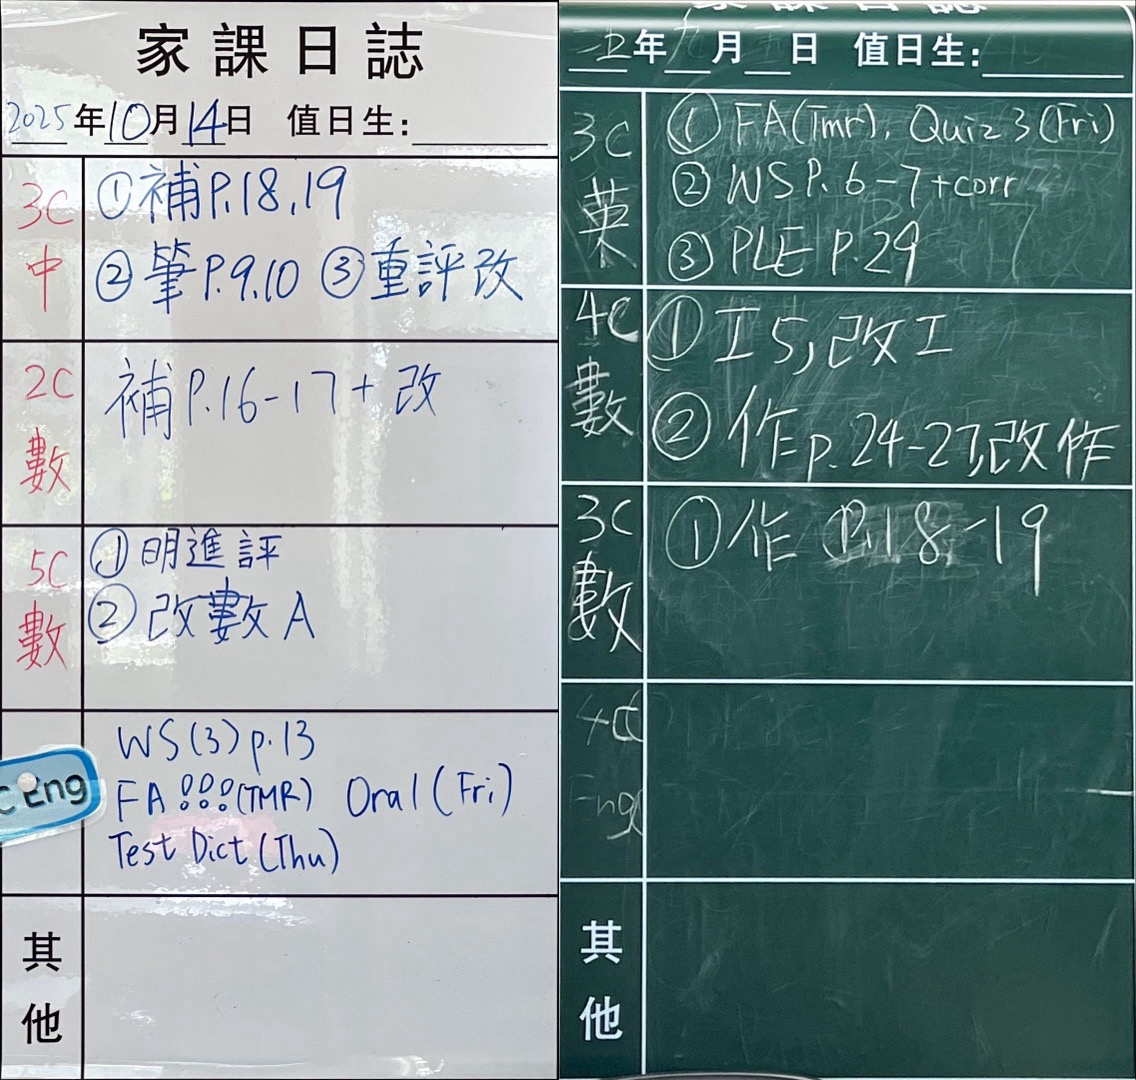 家課日誌
2025年10月14日 值日生:
3C
中
①補P.18,19
②筆P.9,10 ③重評改
2C
數
補P.16-17+改
5C
數
①明進評
②改數A
C Eng
WS(3)p.13
FA!!!(TMR) Oral(Fri)
Test Dict(Thu)
其
他
家課日誌
年 月 日 值日生:
3C
英
①FA(Tmr), Quiz 3(Fri)
②WS P.6-7+corr
③PLE P.29
4C
數
①工5,改工
②作p.24-27,改作
3C
數
①作 P.18-19
其
他